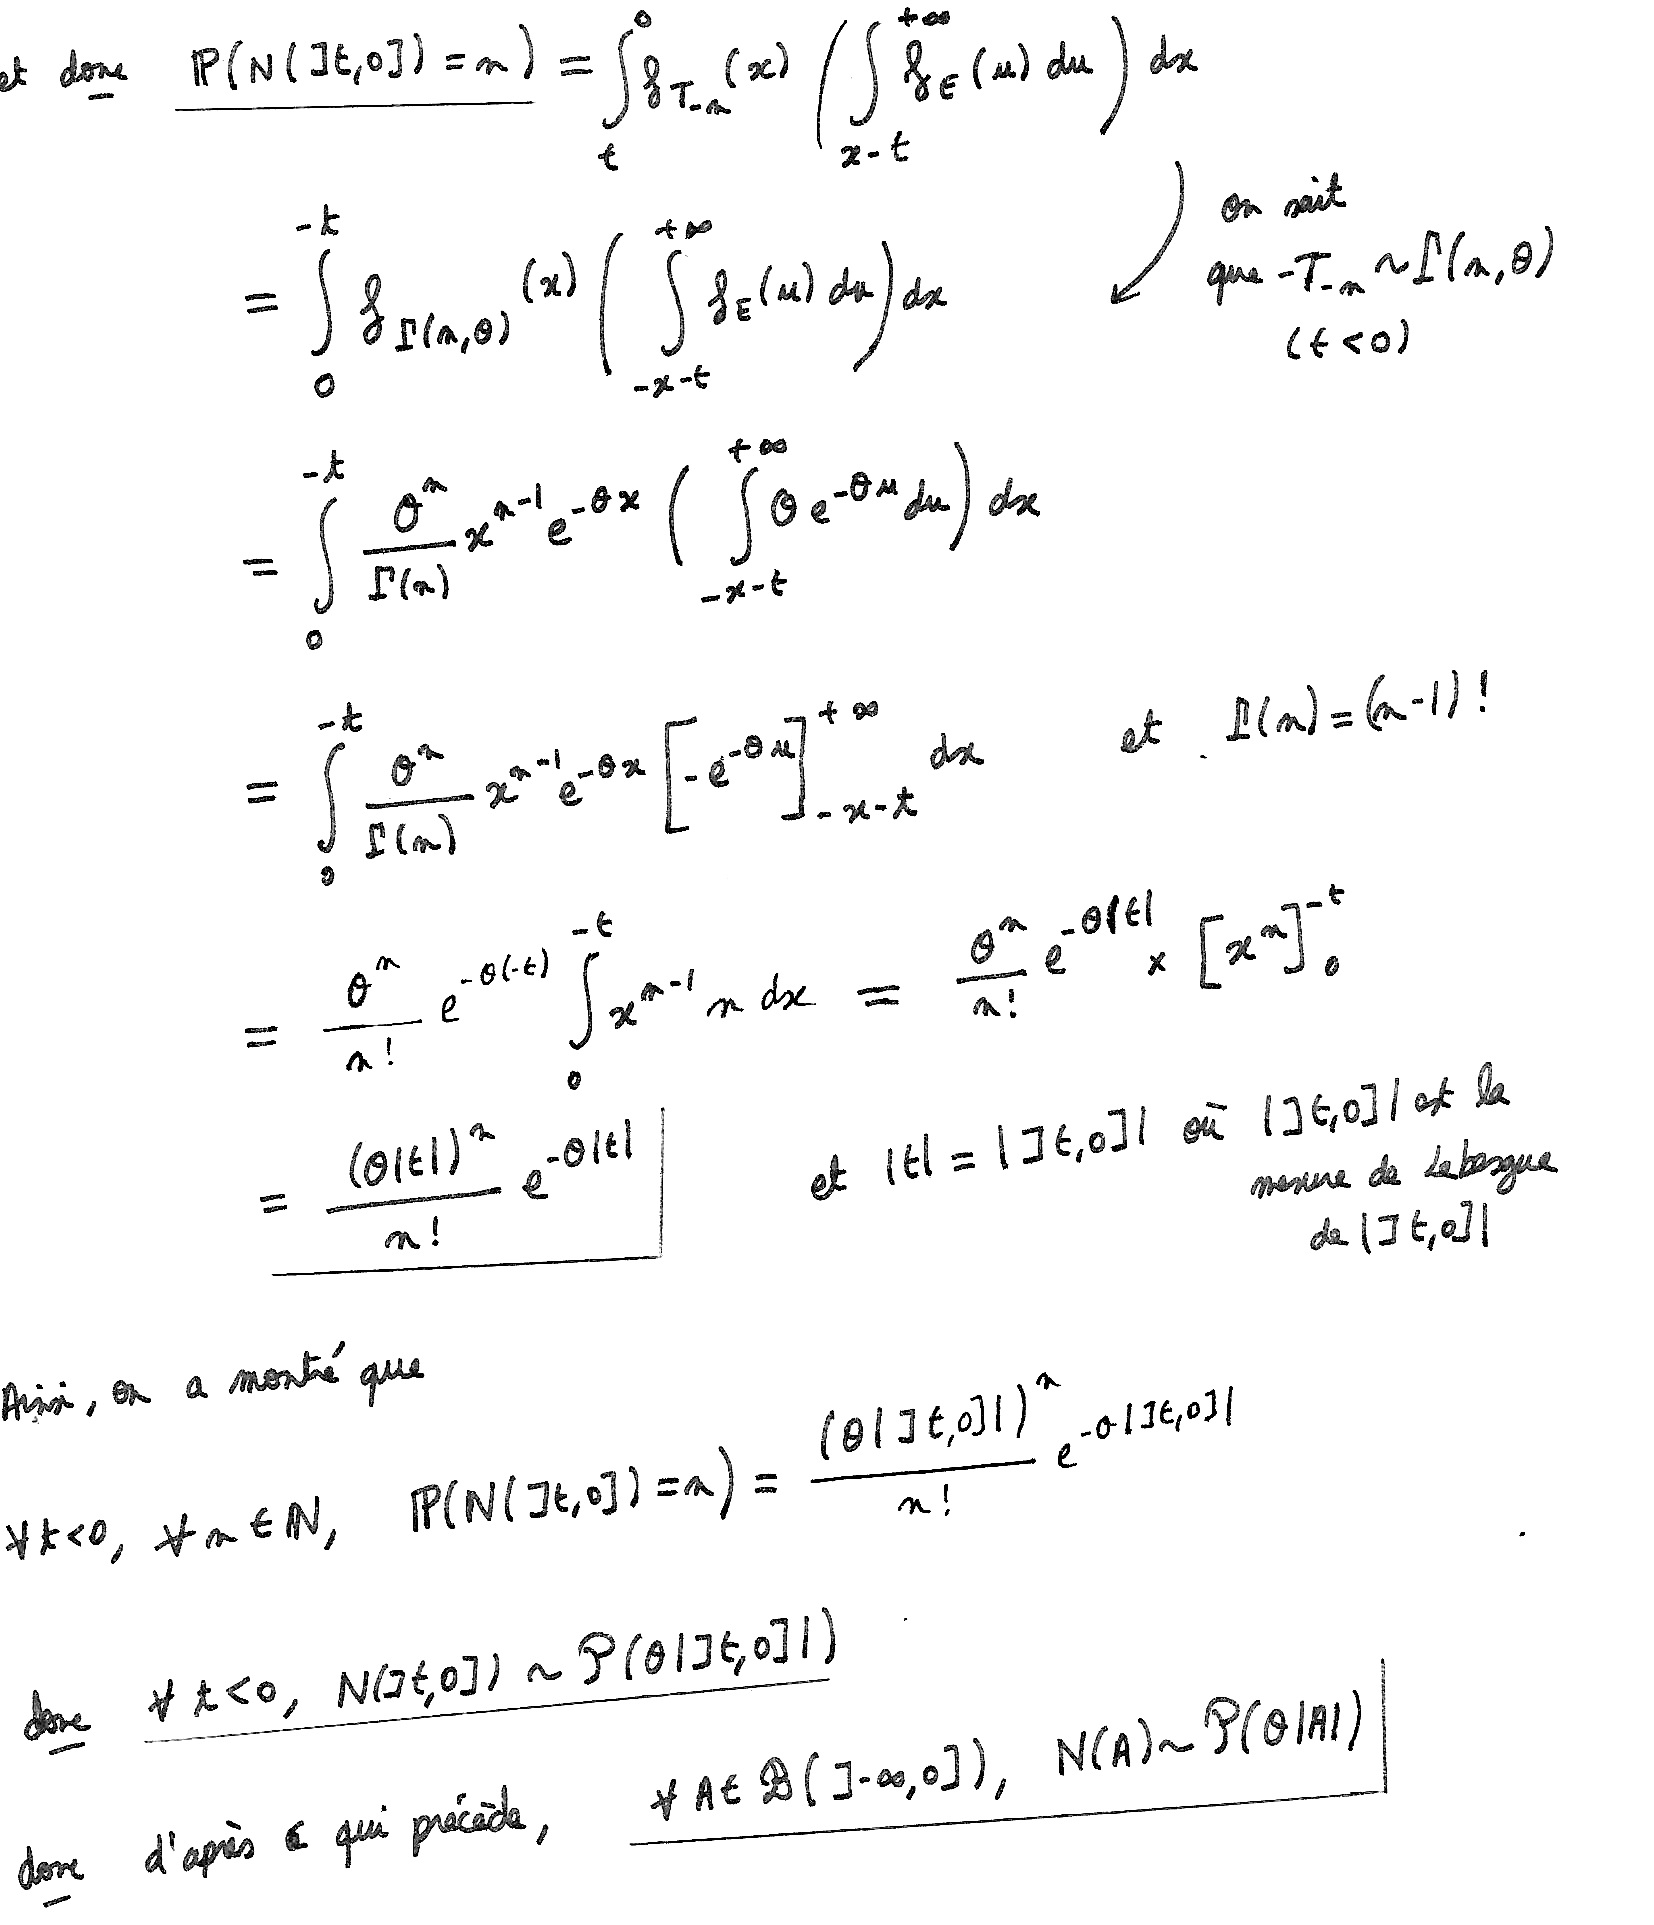 et donc ℙ(N(]t,0]) = n) = ∫_t^0 f_{T_{-n}}(x) ( ∫_{x-t}^{+∞} f_E(u) du ) dx
= ∫_0^{-t} f_{Γ(n,θ)}(x) ( ∫_{-x-t}^{+∞} f_E(u) du ) dx
on sait
que -T_{-n} ~ Γ(n,θ)
(t<0)
= ∫_0^{-t} θ^n/Γ(n) x^{n-1} e^{-θx} ( ∫_{-x-t}^{+∞} θ e^{-θu} du ) dx
= ∫_0^{-t} θ^n/Γ(n) x^{n-1} e^{-θx} [ -e^{-θu} ]_{-x-t}^{+∞} dx et Γ(n) = (n-1)!
= θ^n/n! e^{-θ(-t)} ∫_0^{-t} x^{n-1} n dx = θ^n/n! e^{-θ|t|} × [x^n]_0^{-t}
= (θ|t|)^n/n! e^{-θ|t|} et |t| = |]t,0]| où |]t,0]| est la
mesure de Lebesgue
de |]t,0]|
Ainsi, on a montré que
∀t<0, ∀n∈ℕ, ℙ(N(]t,0]) = n) = (θ|]t,0]|)^n/n! e^{-θ|]t,0]|}
donc ∀t<0, N(]t,0]) ~ 𝒫(θ|]t,0]|)
donc d'après ce qui précède, ∀A∈ℬ(]-∞,0]), N(A) ~ 𝒫(θ|A|)